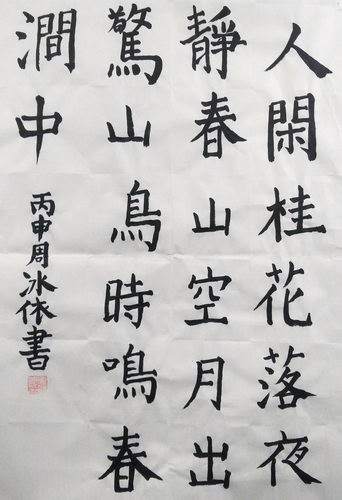 人閑桂花落夜
靜春山空月出
驚山鳥時鳴春
澗中
丙申周冰依書